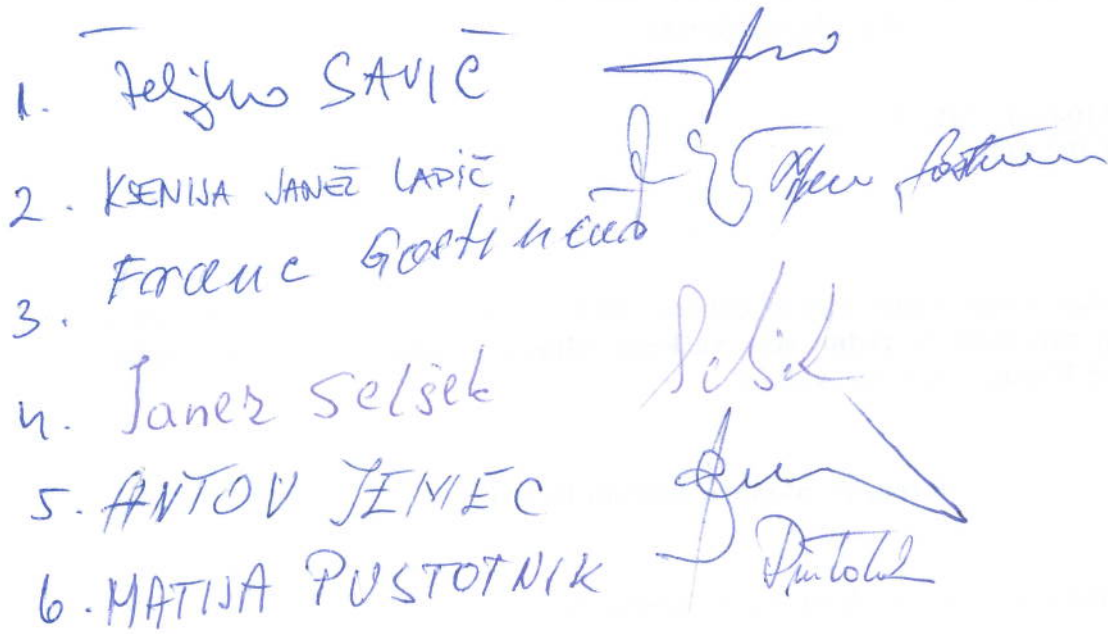 1. Željko SAVIČ
2. KSENIJA JANEŽ LAPIČ
3. Franc Gostinčar
4. Janez Selšek Selšek
5. ANTON JEMEC
6. MATIJA PUSTOTNIK